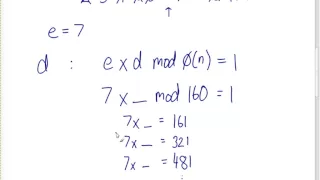 e = 7
d : e x d mod φ(n) = 1
7 x _ mod 160 = 1
7x _ = 161
7x _ = 321
7x _ = 481